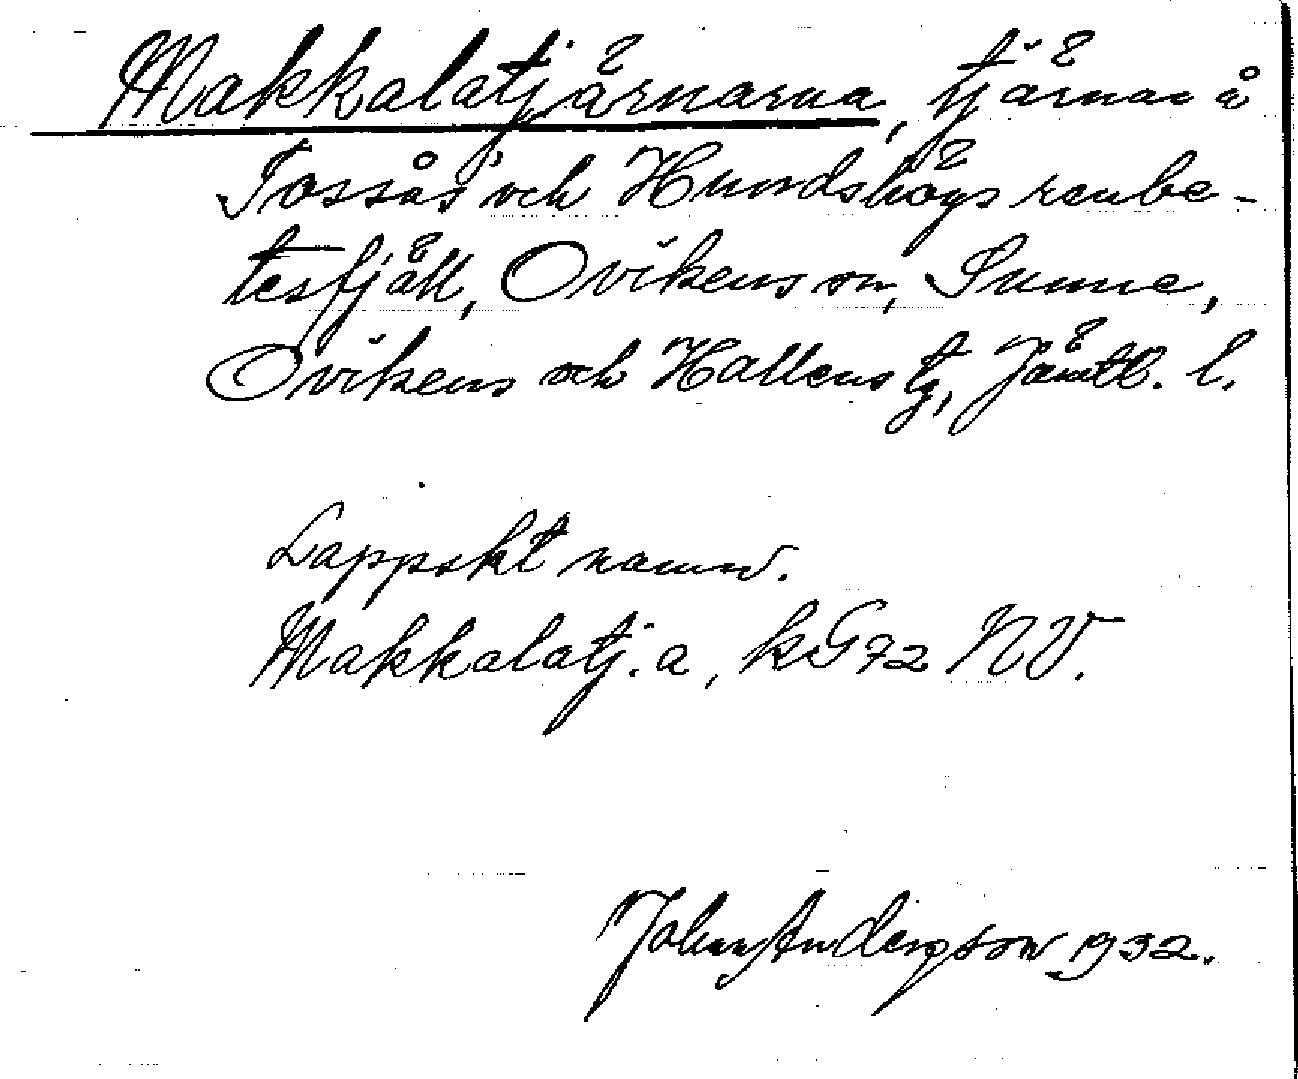 Makkalatjärnarna, tjärnar å
Tossås och Hundshögs renbe-
tesfjäll, Ovikens sn, Sunne,
Ovikens och Hallens tg, Jämtl. l.
Lappskt namn.
Makkalatj.a, kG72 NV.
Johan Anderson 1932.